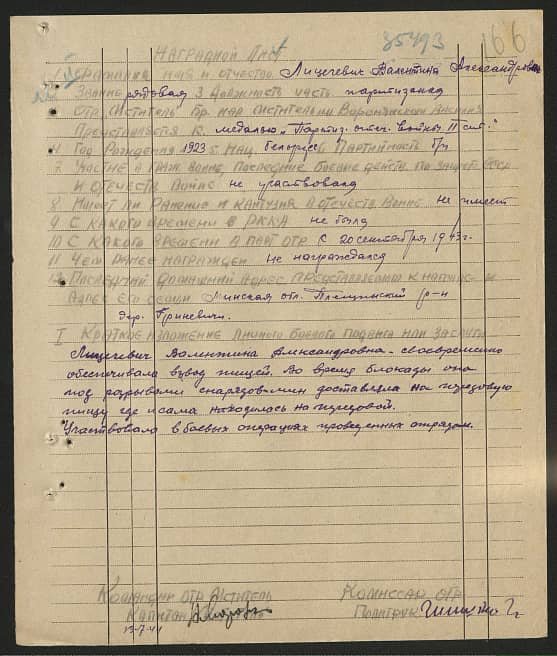 35493
166
Наградной Лист
1 Фамилия имя и отчество. Лицегевич Валентина Александровна
2 Звание рядовая 3 Должность часть партизанка
Отр. Мститель бр. нар. мстители Воронянского
Представляется к. медалью "Партиз. отеч. войны II ст."
4 Год Рождения 1923 5. Нац. белорус 6 Партийность б/п
7 Участие в граж. войне, последние боевые действ. по защите СССР
и отечеств. войне не участвовала
8 Имеет ли ранение и контузия в отечеств. войне не имеет
9 С какого времени в РККА не была
10 С какого времени в парт. отр. с 20 сентября 1943 г.
11 Чем ранее награжден не награждалась
12 Последний домашний адрес представляемого к наград. и
Адрес его семьи Минская обл. Плещинский р-н
дер. Гриневичи.
I Краткое изложение личного боевого подвига или заслуги
Лицегевич Валентина Александровна - своевременно
обеспечивала взвод пищей. Во время блокады она
под разрывами снарядов-мин доставляла на передовую
пищу где и сама находилась на передовой.
Участвовала в боевых операциях проведенных отрядом.
Командир отр. Мститель
Комиссар отр.
Капитан
Политрук
13-7-44